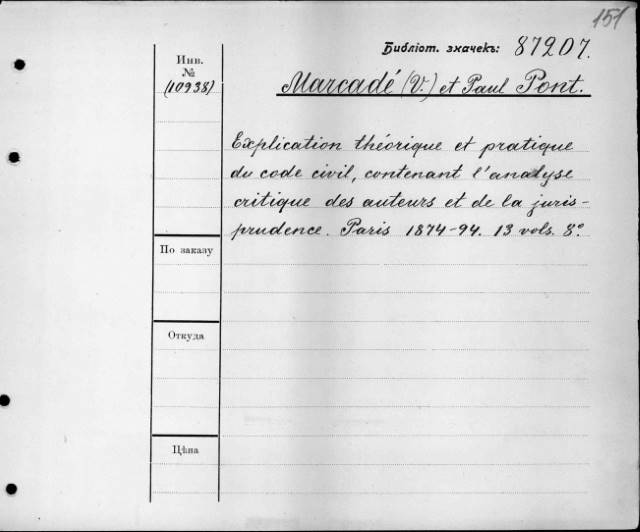 151
Библiот. значекъ: 87207.
Инв.
№
(10938)
Marcadé (V.) et Paul Pont.
Explication théorique et pratique
du code civil, contenant l'analyse
critique des auteurs et de la juris-
prudence. Paris 1874-94. 13 vols. 8º
По заказу
Откуда
Цѣна